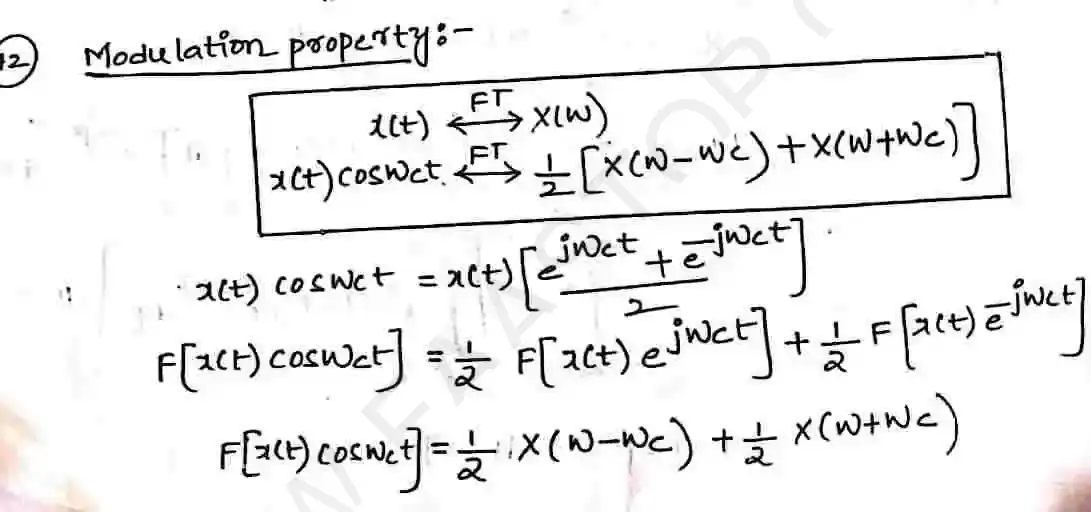 12 Modulation property:-
x(t) <-FT-> X(W)
x(t) cosWct. <-FT-> 1/2 [X(W-Wc) + X(W+Wc)]
x(t) cosWct = x(t) [(e^jWct + e^-jWct)/2]
F[x(t) cosWct] = 1/2 F[x(t) e^jWct] + 1/2 F[x(t) e^-jWct]
F[x(t) cosWct] = 1/2 X(W-Wc) + 1/2 X(W+Wc)